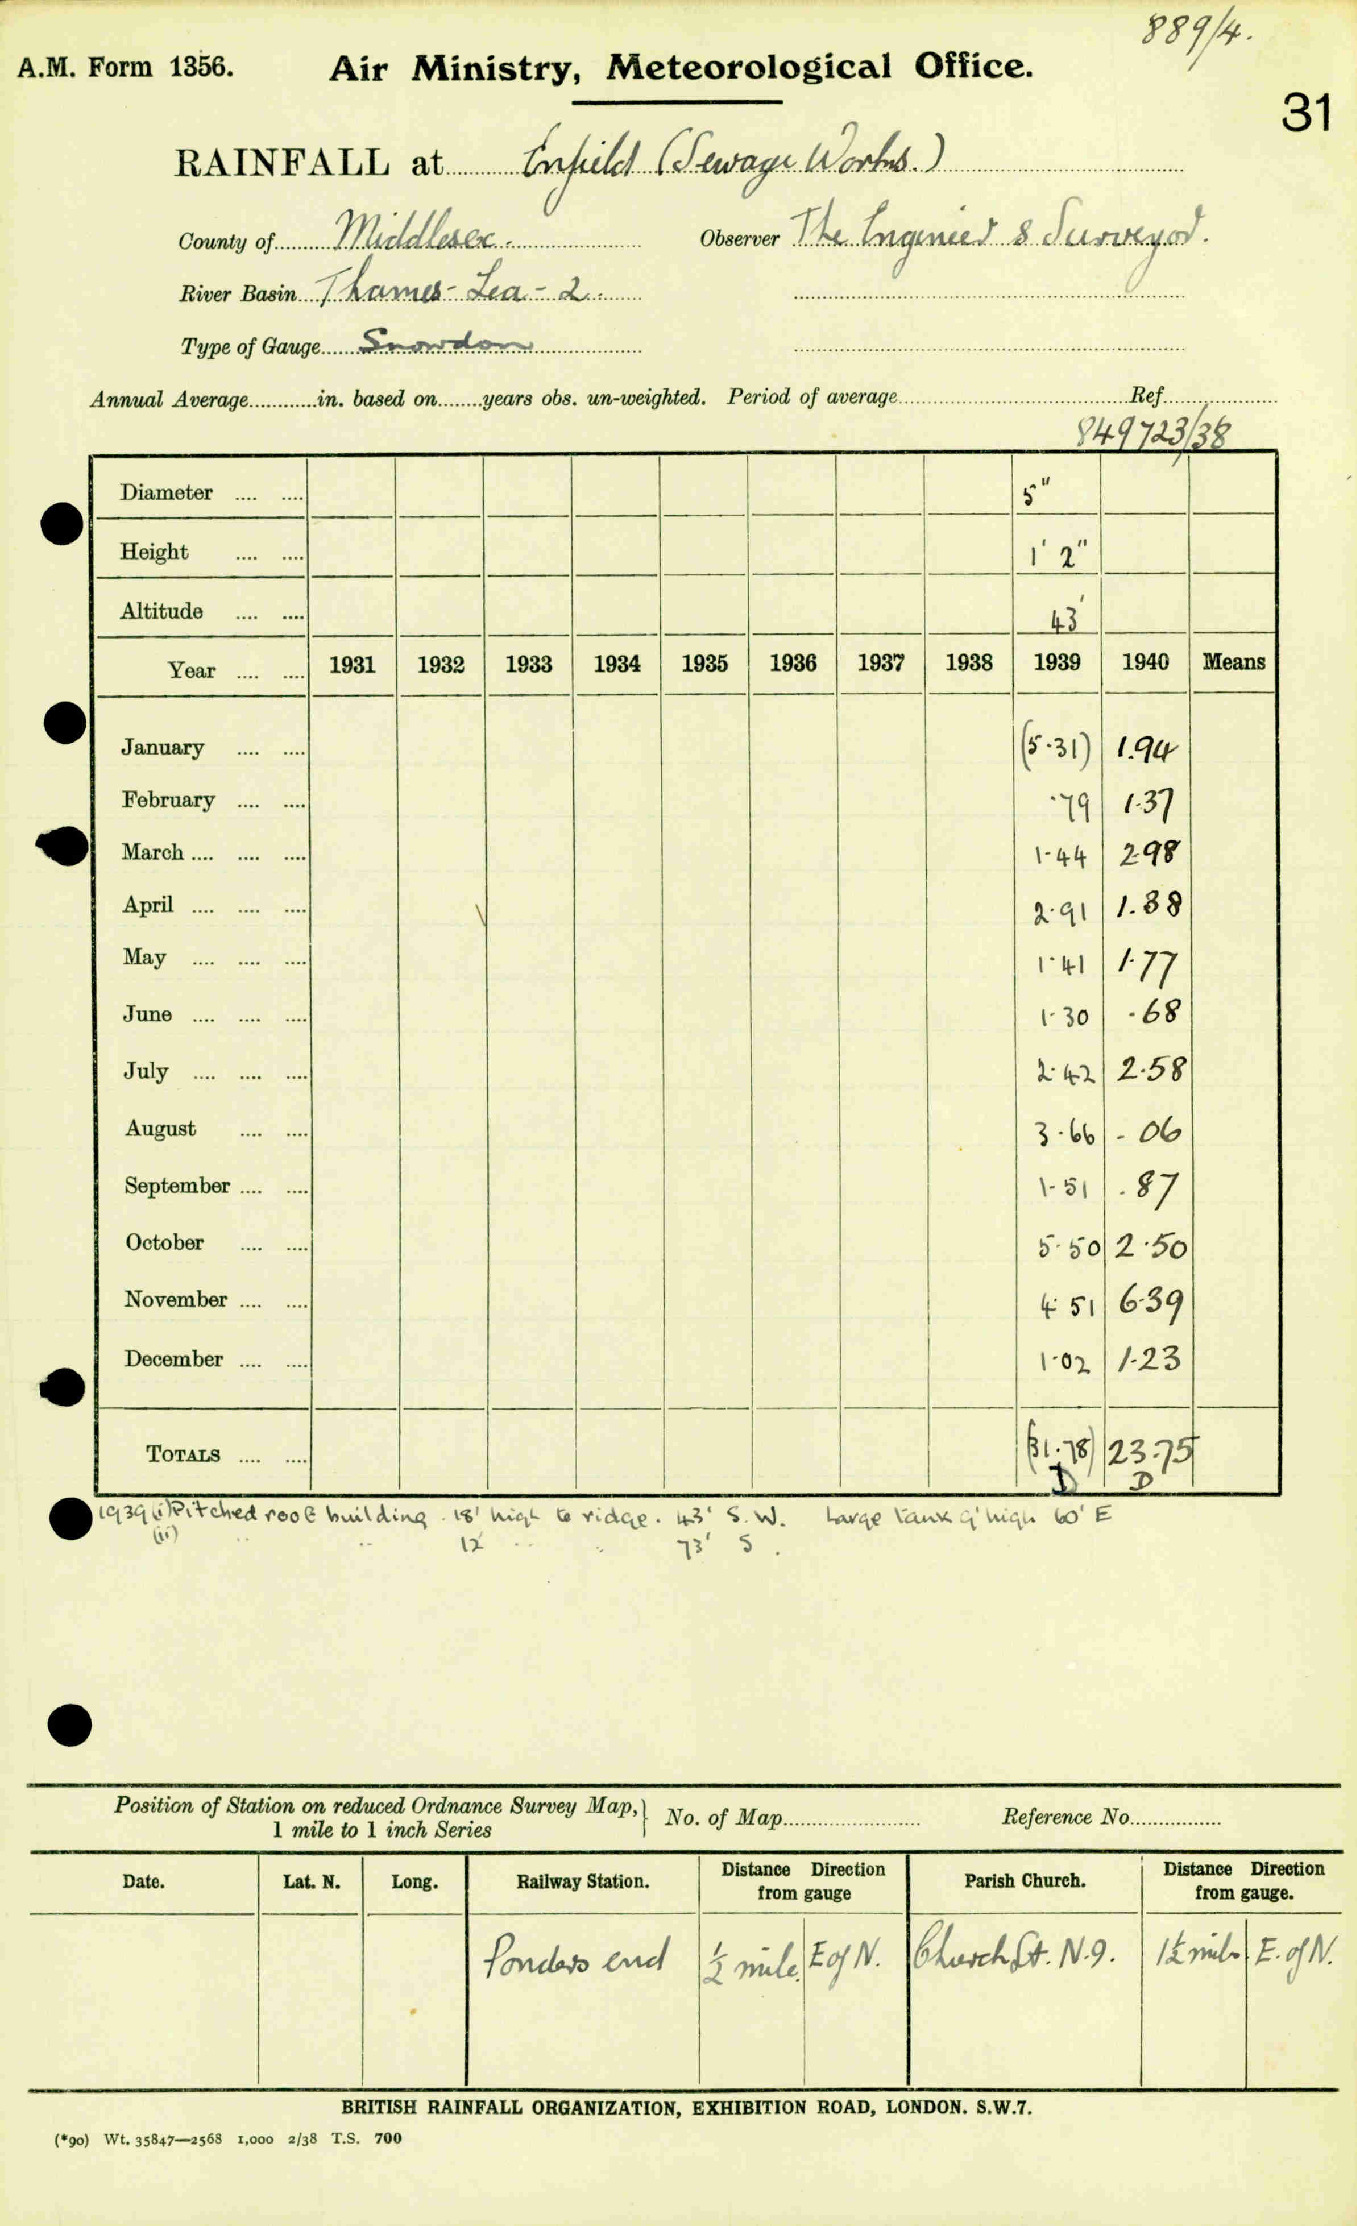 889/4.
A.M. Form 1356. Air Ministry, Meteorological Office.
31
RAINFALL at Enfield (Sewage Works.)
County of Middlesex. Observer The Engineer & Surveyor.
River Basin Thames - Lea - 2.
Type of Gauge Snowdon
Annual Average in. based on years obs. un-weighted. Period of average Ref.
849723/38
Diameter 5"
Height 1' 2"
Altitude 43'
Year 1931 1932 1933 1934 1935 1936 1937 1938 1939 1940 Means
January (5.31) 1.94
February .79 1.37
March 1.44 2.98
April 2.91 1.38
May 1.41 1.77
June 1.30 .68
July 2.42 2.58
August 3.66 .06
September 1.51 .87
October 5.50 2.50
November 4.51 6.39
December 1.02 1.23
TOTALS (31.78) 23.75
D D
1939 (i) Pitched roof building. 18' high to ridge. 43' S.W. Large tank 9' high 60' E
(ii) " " 12' " " 73' S.
Position of Station on reduced Ordnance Survey Map, No. of Map Reference No.
1 mile to 1 inch Series
Date. Lat. N. Long. Railway Station. Distance Direction from gauge Parish Church. Distance Direction from gauge.
Ponders end ½ mile E of N. Church St. N.9. 1½ mile E. of N.
BRITISH RAINFALL ORGANIZATION, EXHIBITION ROAD, LONDON. S.W.7.
(*90) Wt. 35847—2568 1,000 2/38 T.S. 700